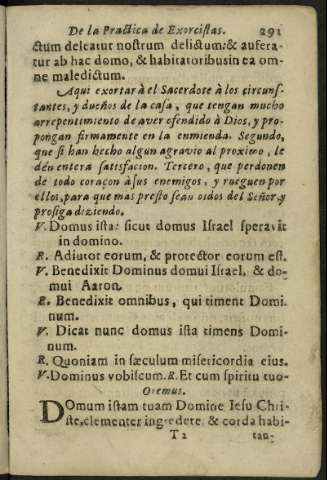 De la Practica de Exorcistas. 291
ctum deleatur nostrum delictum: & aufera-
tur ab hac domo, & habitatoribus in ea om-
ne maledictum.
Aqui exortarà el Sacerdote à los circunf-
tantes, y dueños de la casa, que tengan mucho
arrepentimiento de aver ofendido à Dios, y pro-
pongan firmamente en la enmienda. Segundo,
que si han hecho algun agravio al proximo, le
dèn entera satisfacion. Tercero, que perdonen
de todo coraçon à sus enemigos, y rueguen por
ellos, para que mas presto sean oidos del Señor, y
prosiga diziendo.
V. Domus ista: sicut domus Israel speravit
in domino.
R. Adiutor eorum, & protector eorum est.
V. Benedixit Dominus domui Israel, & do-
mui Aaron.
R. Benedixit omnibus, qui timent Domi-
num.
V. Dicat nunc domus ista timens Domi-
num.
R. Quoniam in sæculum misericordia eius.
V. Dominus vobiscum. R. Et cum spiritu tuo.
Oremus.
Domum istam tuam Domine Iesu Chri-
ste, clementer ingredere, & corda habi-
T 2 tan-